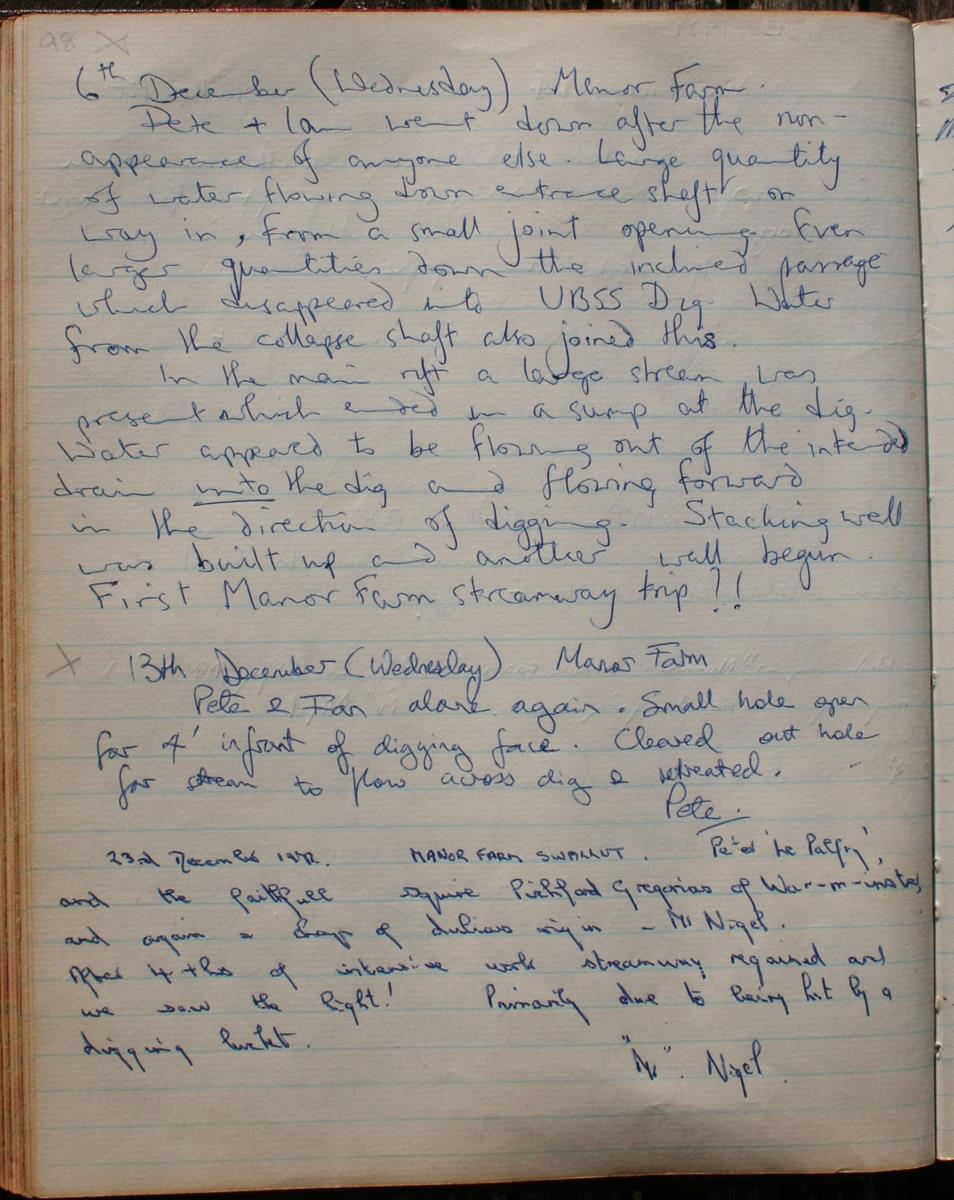 98 X
6th December (Wednesday) Manor Farm.
Pete + Ian went down after the non-
appearance of anyone else. Large quantity
of water flowing down entrace shaft on
way in, from a small joint opening. Even
larger quantities down the inclined passage
which disappeared into UBSS Dig. Water
from the collapse shaft also joined this.
In the main rift a large stream was
present which ended in a sump at the dig.
Water appeared to be flowing out of the intended
drain into the dig and flowing forward
in the direction of digging. Stacking well
was built up and another wall begun.
First Manor Farm streamway trip?!!
X 13th December (Wednesday) Manor Farm
Pete & Ian alone again. Small hole open
for 4' infront of digging face. Cleared out hole
for stream to flow across dig & retreated.
Pete.
23rd December 1972. MANOR FARM SWALLET. Peter 'he Palfry',
and the faithfull squire Pichford Gregorias of War-m-inster
and again a chap of dubious origin - Mr Nigel.
After 4 ths of intensive work streamway regained and
we saw the light! Primarily due to being hit by a
digging bucket.
"Mr". Nigel.